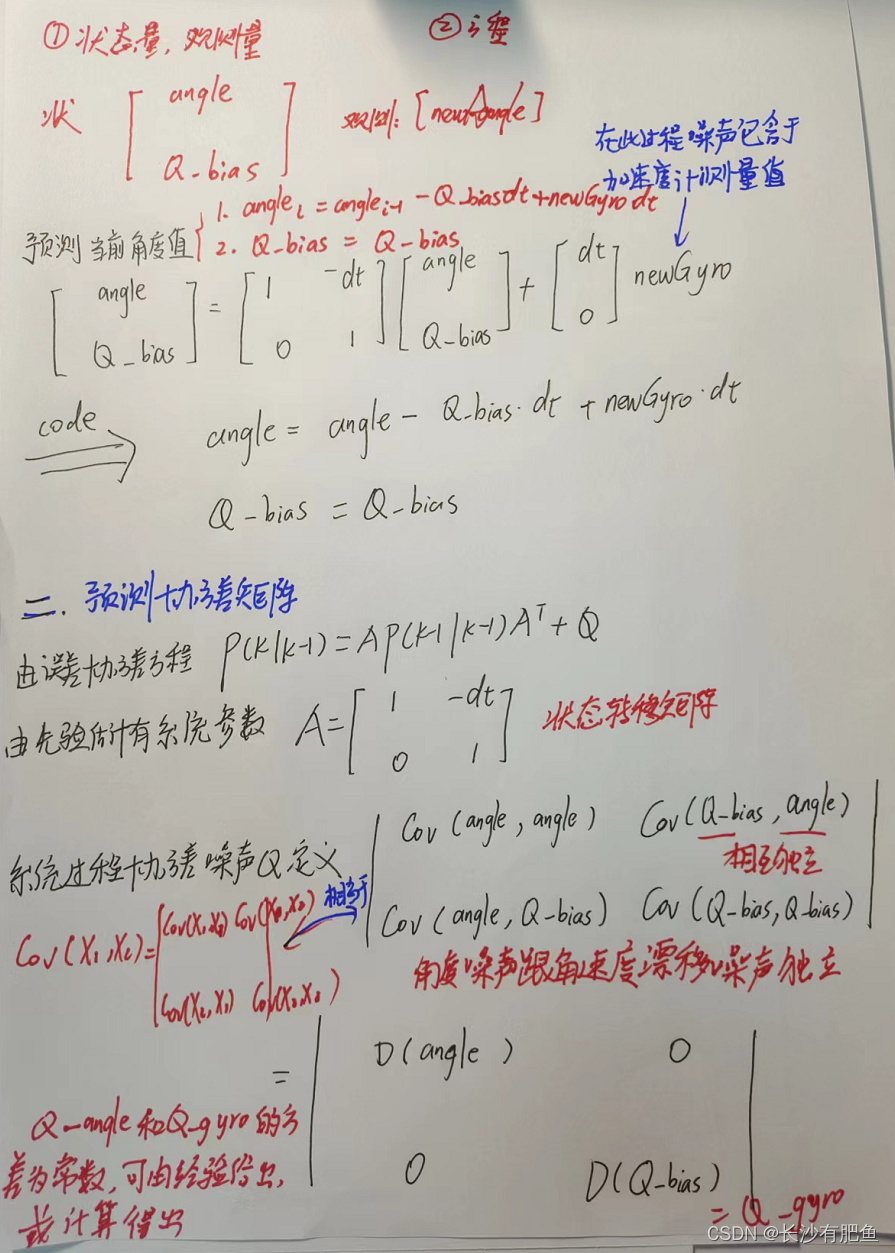 ①状态量，观测量
②方程
状 [angle
Q_bias]
观测：[newAngle]
在此过程噪声包含于
加速度计测量值
预测当前角度值
1. angleᵢ = angleᵢ₋₁ - Q_biasdt + newGyro dt
2. Q_bias = Q_bias
[angle
Q_bias] = [1 -dt
0 1] [angle
Q_bias] + [dt
0] newGyro
code ⇒ angle = angle - Q_bias· dt + newGyro·dt
Q_bias = Q_bias
二. 预测协方差矩阵
由误差协方差方程 P(k|k-1) = A P(k-1|k-1) Aᵀ + Q
由先验估计有系统参数 A = [1 -dt
0 1] 状态转移矩阵
系统过程协方差噪声Q定义
|Cov(angle, angle) Cov(Q_bias, angle)
相互独立
Cov(angle, Q-bias) Cov(Q-bias, Q-bias)|
相当于
Cov(X₁, X₂) = |Cov(X₁,X₁) Cov(X₁,X₂)
Cov(X₂,X₁) Cov(X₂,X₂)
角度噪声跟角速度漂移噪声独立
= |D(angle) 0
0 D(Q-bias)|
= Q_gyro
Q_angle和Q_gyro的方
差为常数，可由经验给出，
或计算得出
CSDN @长沙有肥鱼